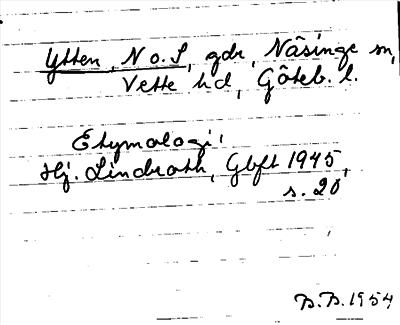 Ytten, N o. S, gdr, Näsinge sn,
Vette hd, Göteb. l.
Etymologi:
Hj. Lindroth, Gbft 1945,
s. 20
B.B. 1954